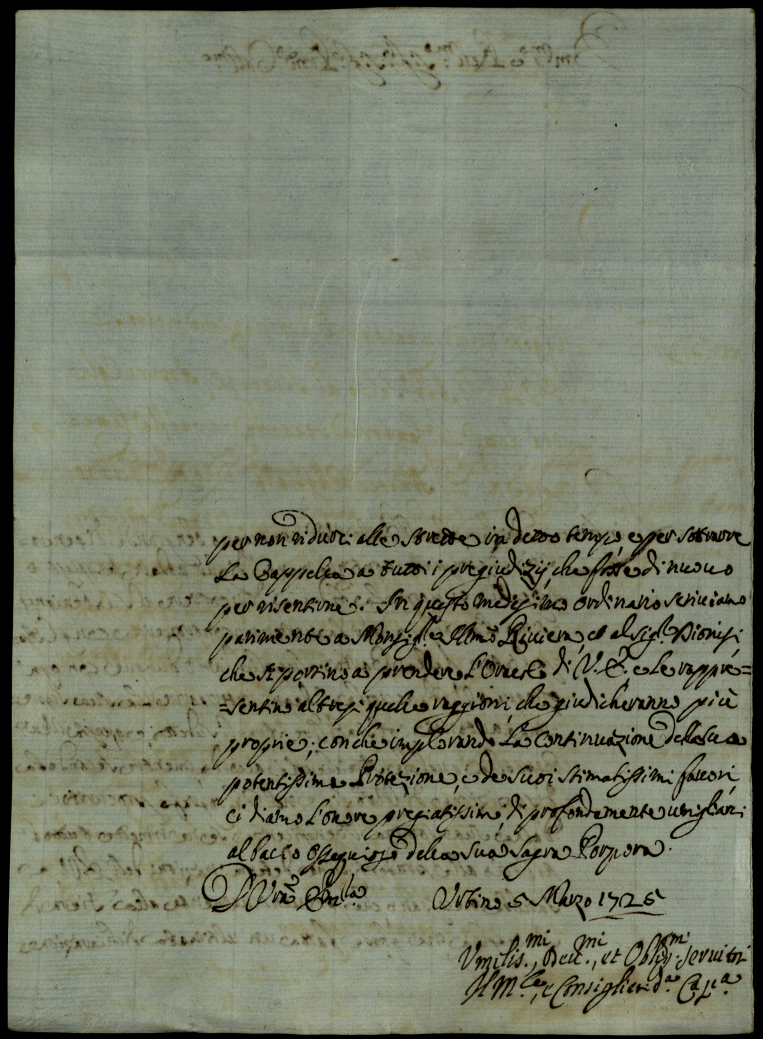 per non ridurci alle strette in detto tempo, e per sottrarre
La Cappella a tutti i pregiudizij che fosse di nuovo
per risentirne. In questo medesimo ordinario scriviamo
parimente a Monsigr. Illmo Riviera, et al sigr. Dionisi
che si portino a prendere L'Oracolo di V. E. e Le rappre=
=sentino altresi quelle raggioni, che giudicheranno più
proprie; con che implorando La Continuazione della sua
potentissima Protezione, e de suoi stimatissimi favori
ci diamo L'onore pregiatissimo di profondamente umigliarci
al bacio Ossequioso della sua sagra Porpora.
D Vra Emza Urbino 5 Marzo 1725
Umilis.mi, Dev.mi, et Obblig.mi servitori
Il M.le, e Consiglieri da. Ca. pa.